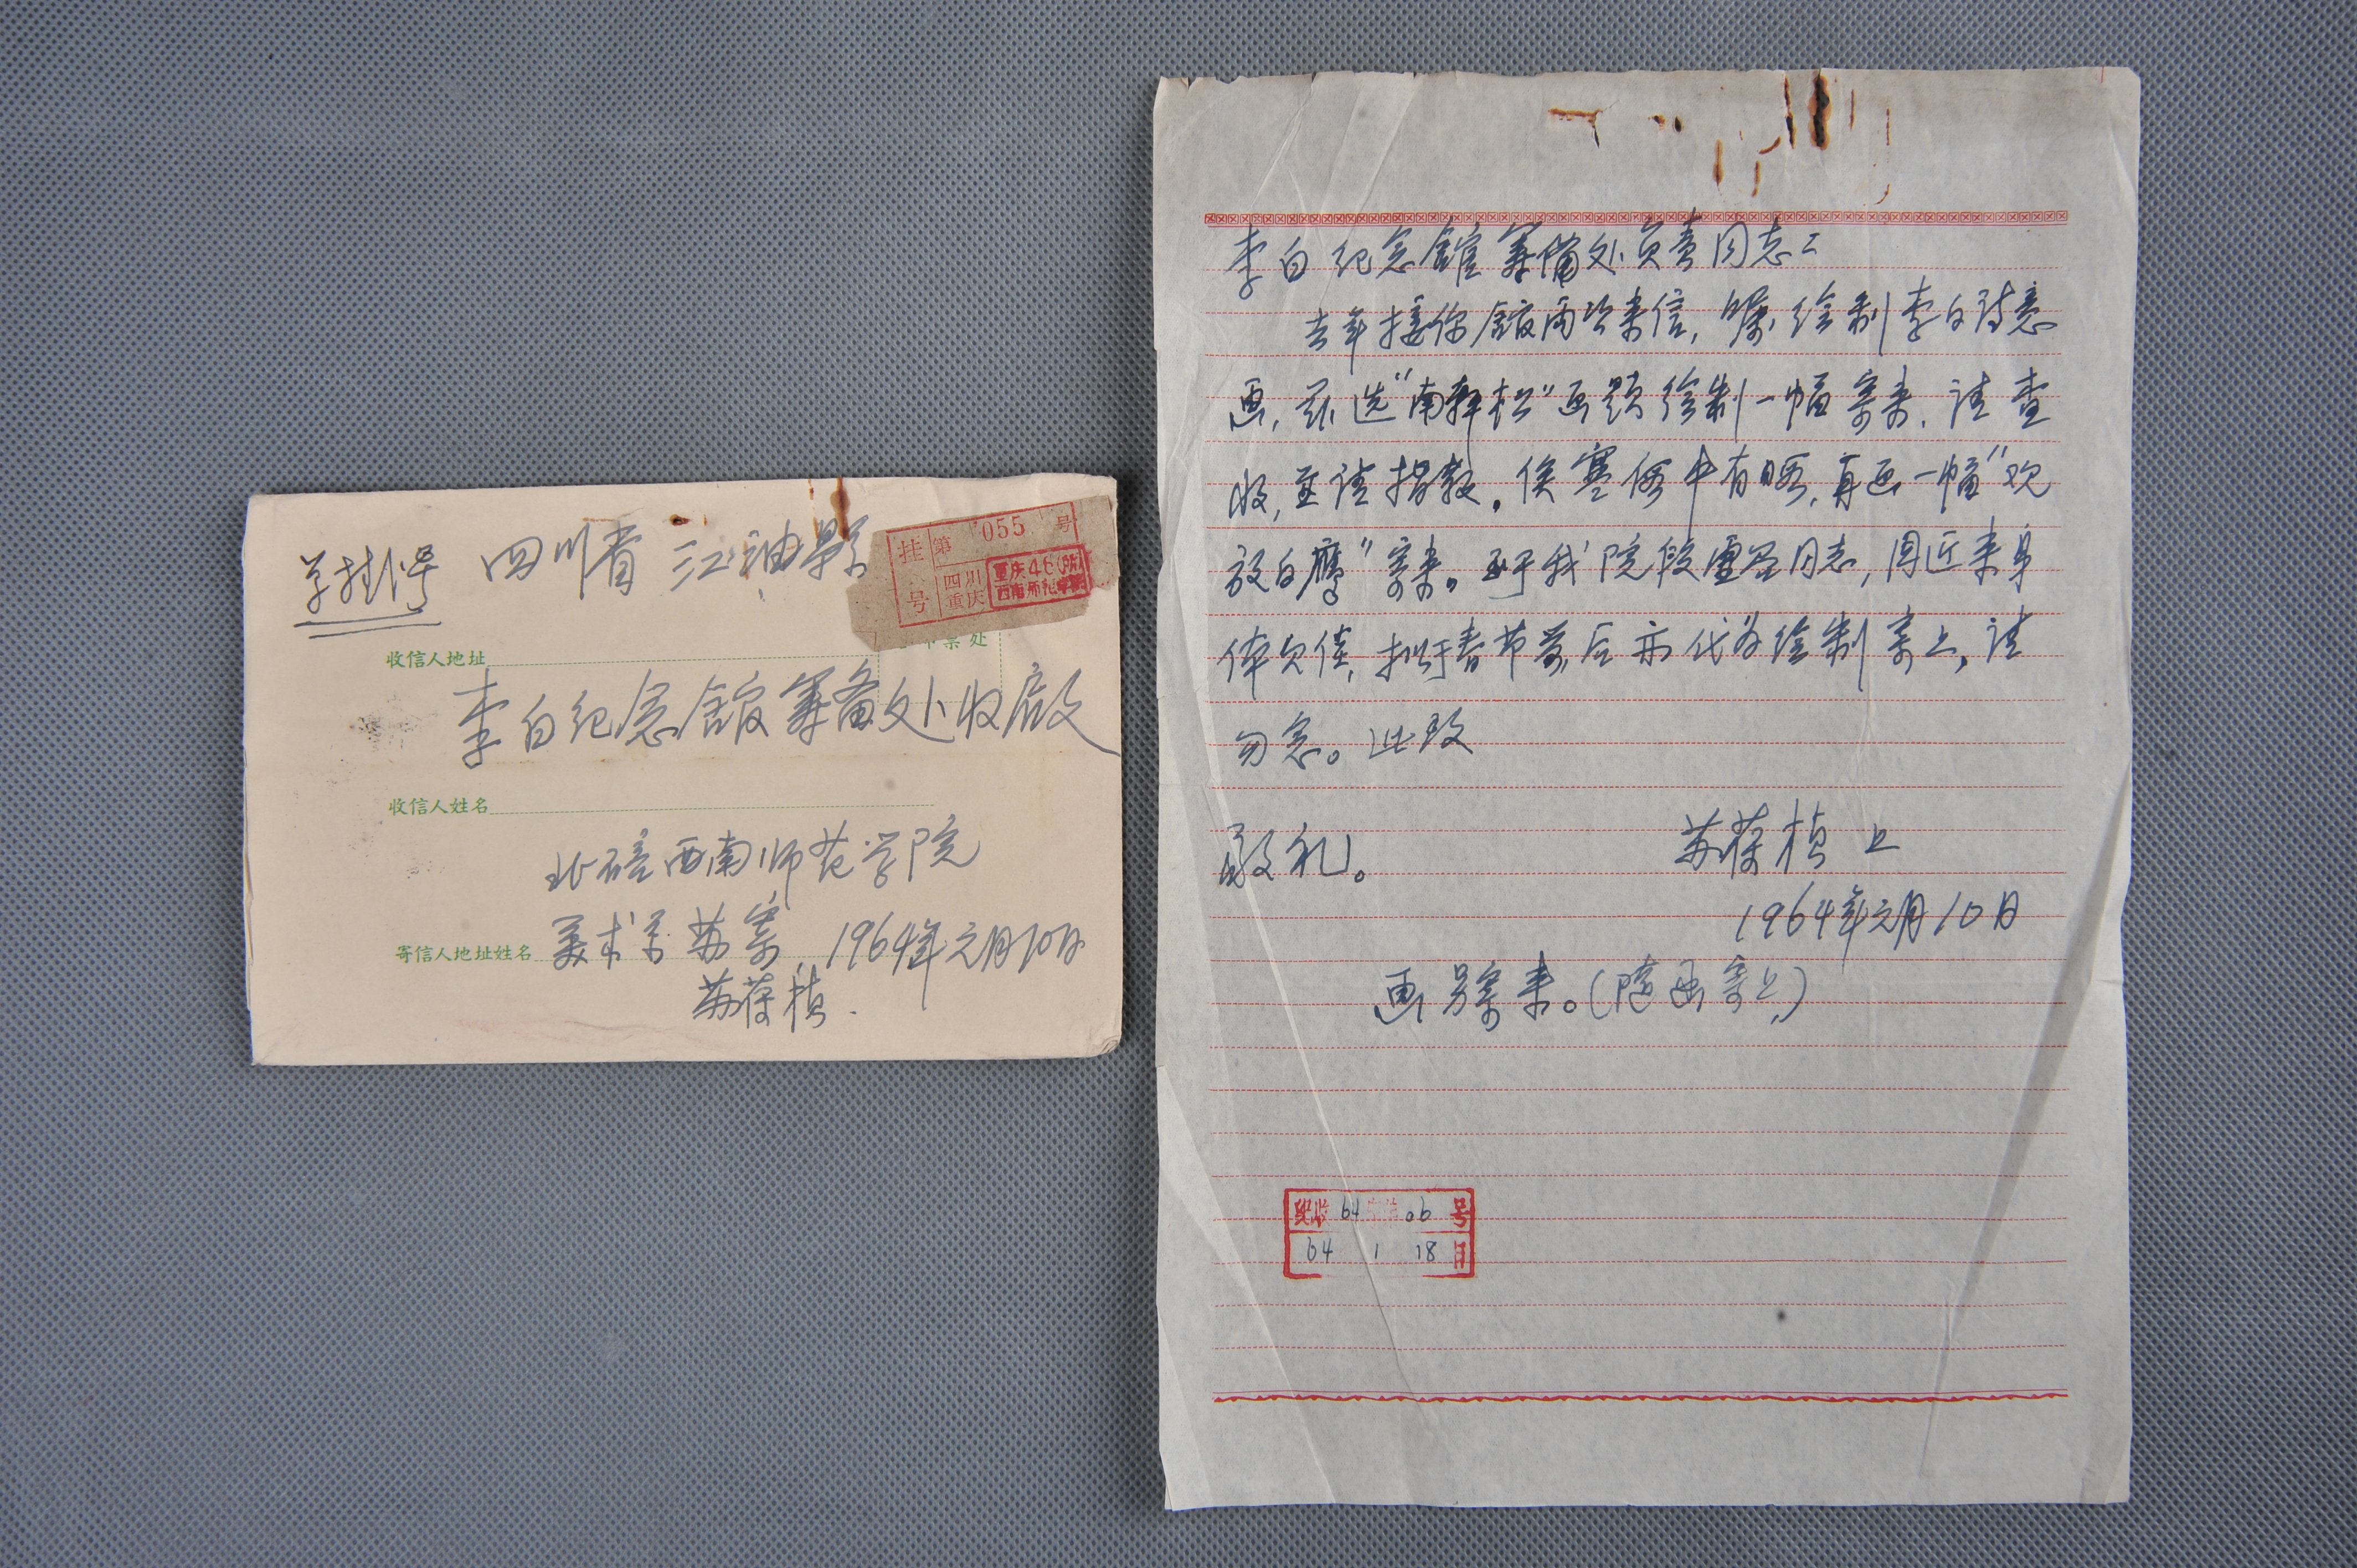 单挂号
四川省江油县
挂号
第055号
四川
重庆
重庆46
西南师范学院
收信人地址
李白纪念館筹备处收启
收信人姓名
北碚西南师范学院
寄信人地址姓名
美术系苏寄 1964年元月10日
苏葆桢
李白纪念館筹備处负责同志:
去年接你館两次来信,嘱绘制李白诗意
画,兹选“南轩松”画题绘制一幅寄来,请查
收,並请指教。俟寒假中有暇,再画一幅“观
放白鷹”寄来。至于我院段虚谷同志,因近来身
体欠佳,拟于春节前后亦代为绘制寄上,请
勿念。此致
敬礼。
苏葆桢上
1964年元月10日
画另寄来。(随函寄上)
收 64 06 号
64 1 18 日